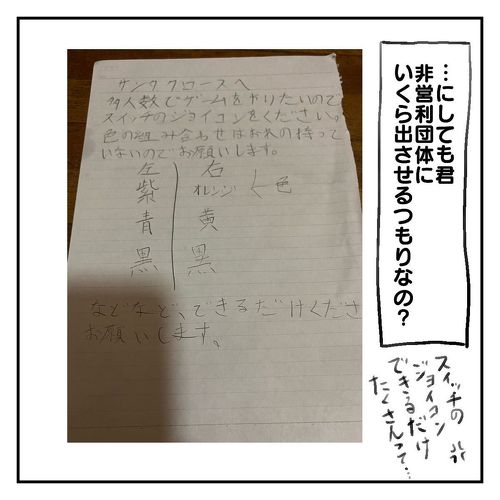 …にしても君
非営利団体に
いくら出させるつもりなの？
サンタクロースへ
多人数でゲームをやりたいので
スイッチのジョイコンをください。
色の組み合わせはおれの持って
いないのでお願いします。
左 右
紫 オレンジ 色
青 黄
黒 黒
などなど、できるだけくださ
お願いします。
スイッチの
ジョイコン
できるだけ
たくさんって…